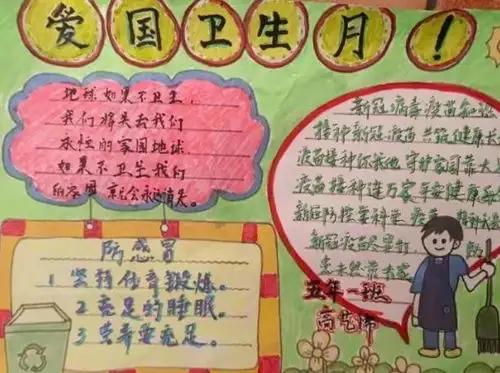 爱国卫生月！
地球如果不卫生，
我们将失去我们
永恒的家园地球
如果不卫生我们
的家园 就会永远消失。
防感冒
1 坚持体育锻炼。
2 充足的睡眠。
3 营养要充足。
新冠病毒疫苗知识
接种新冠疫苗 共筑健康长
疫苗接种你我他 守护家园靠大
疫苗接种进万家 平安健康
新冠防控要科学 疫苗 接种
新冠疫苗尽早打
五年一班